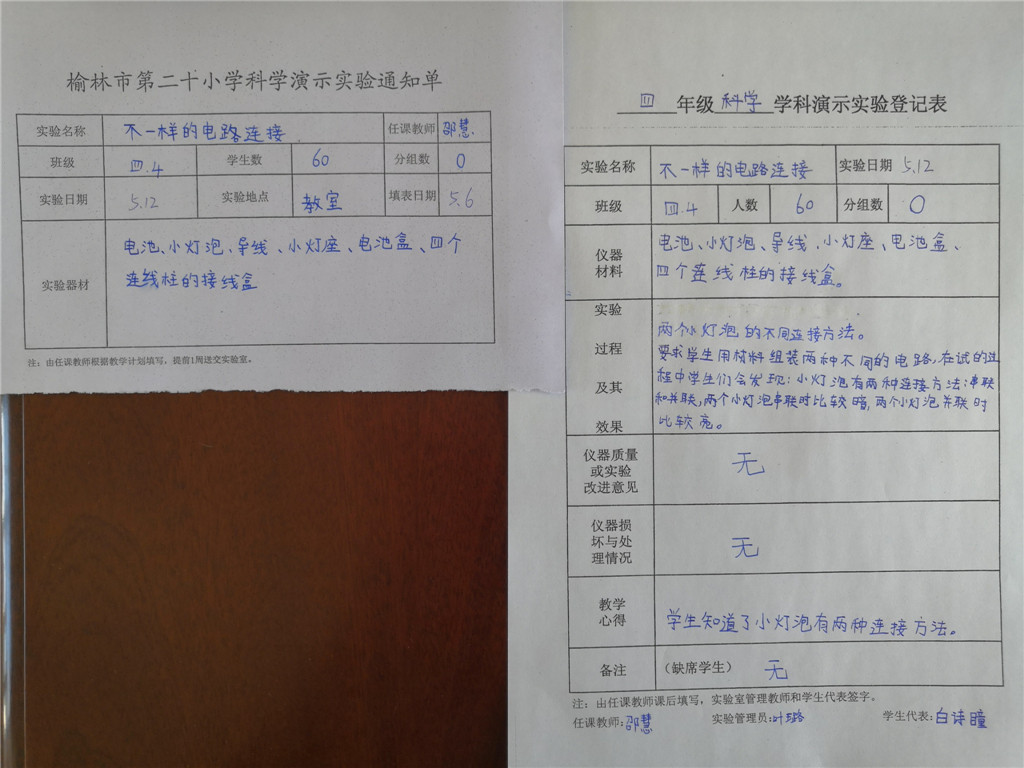 榆林市第二十小学科学演示实验通知单
实验名称 不一样的电路连接 任课教师 邵慧
班级 四.4 学生数 60 分组数 0
实验日期 5.12 实验地点 教室 填表日期 5.6
实验器材 电池、小灯泡、导线、小灯座、电池盒、四个
连线柱的接线盒
注:由任课教师根据教学计划填写,提前1周送交实验室。
四年级科学学科演示实验登记表
实验名称 不一样的电路连接 实验日期 5.12
班级 四.4 人数 60 分组数 0
仪器材料 电池、小灯泡、导线、小灯座、电池盒、
四个连线柱的接线盒。
实验过程及其效果 两个小灯泡的不同连接方法。
要求学生用材料组装两种不同的电路,在试的过
程中学生们会发现:小灯泡有两种连接方法:串联
和并联,两个小灯泡串联时比较暗,两个小灯泡并联时
比较亮。
仪器质量或实验改进意见 无
仪器损坏与处理情况 无
教学心得 学生知道了小灯泡有两种连接方法。
备注 (缺席学生) 无
注:由任课教师课后填写,实验室管理教师和学生代表签字。
任课教师:邵慧 实验管理员:叶璐 学生代表:白诗瞳